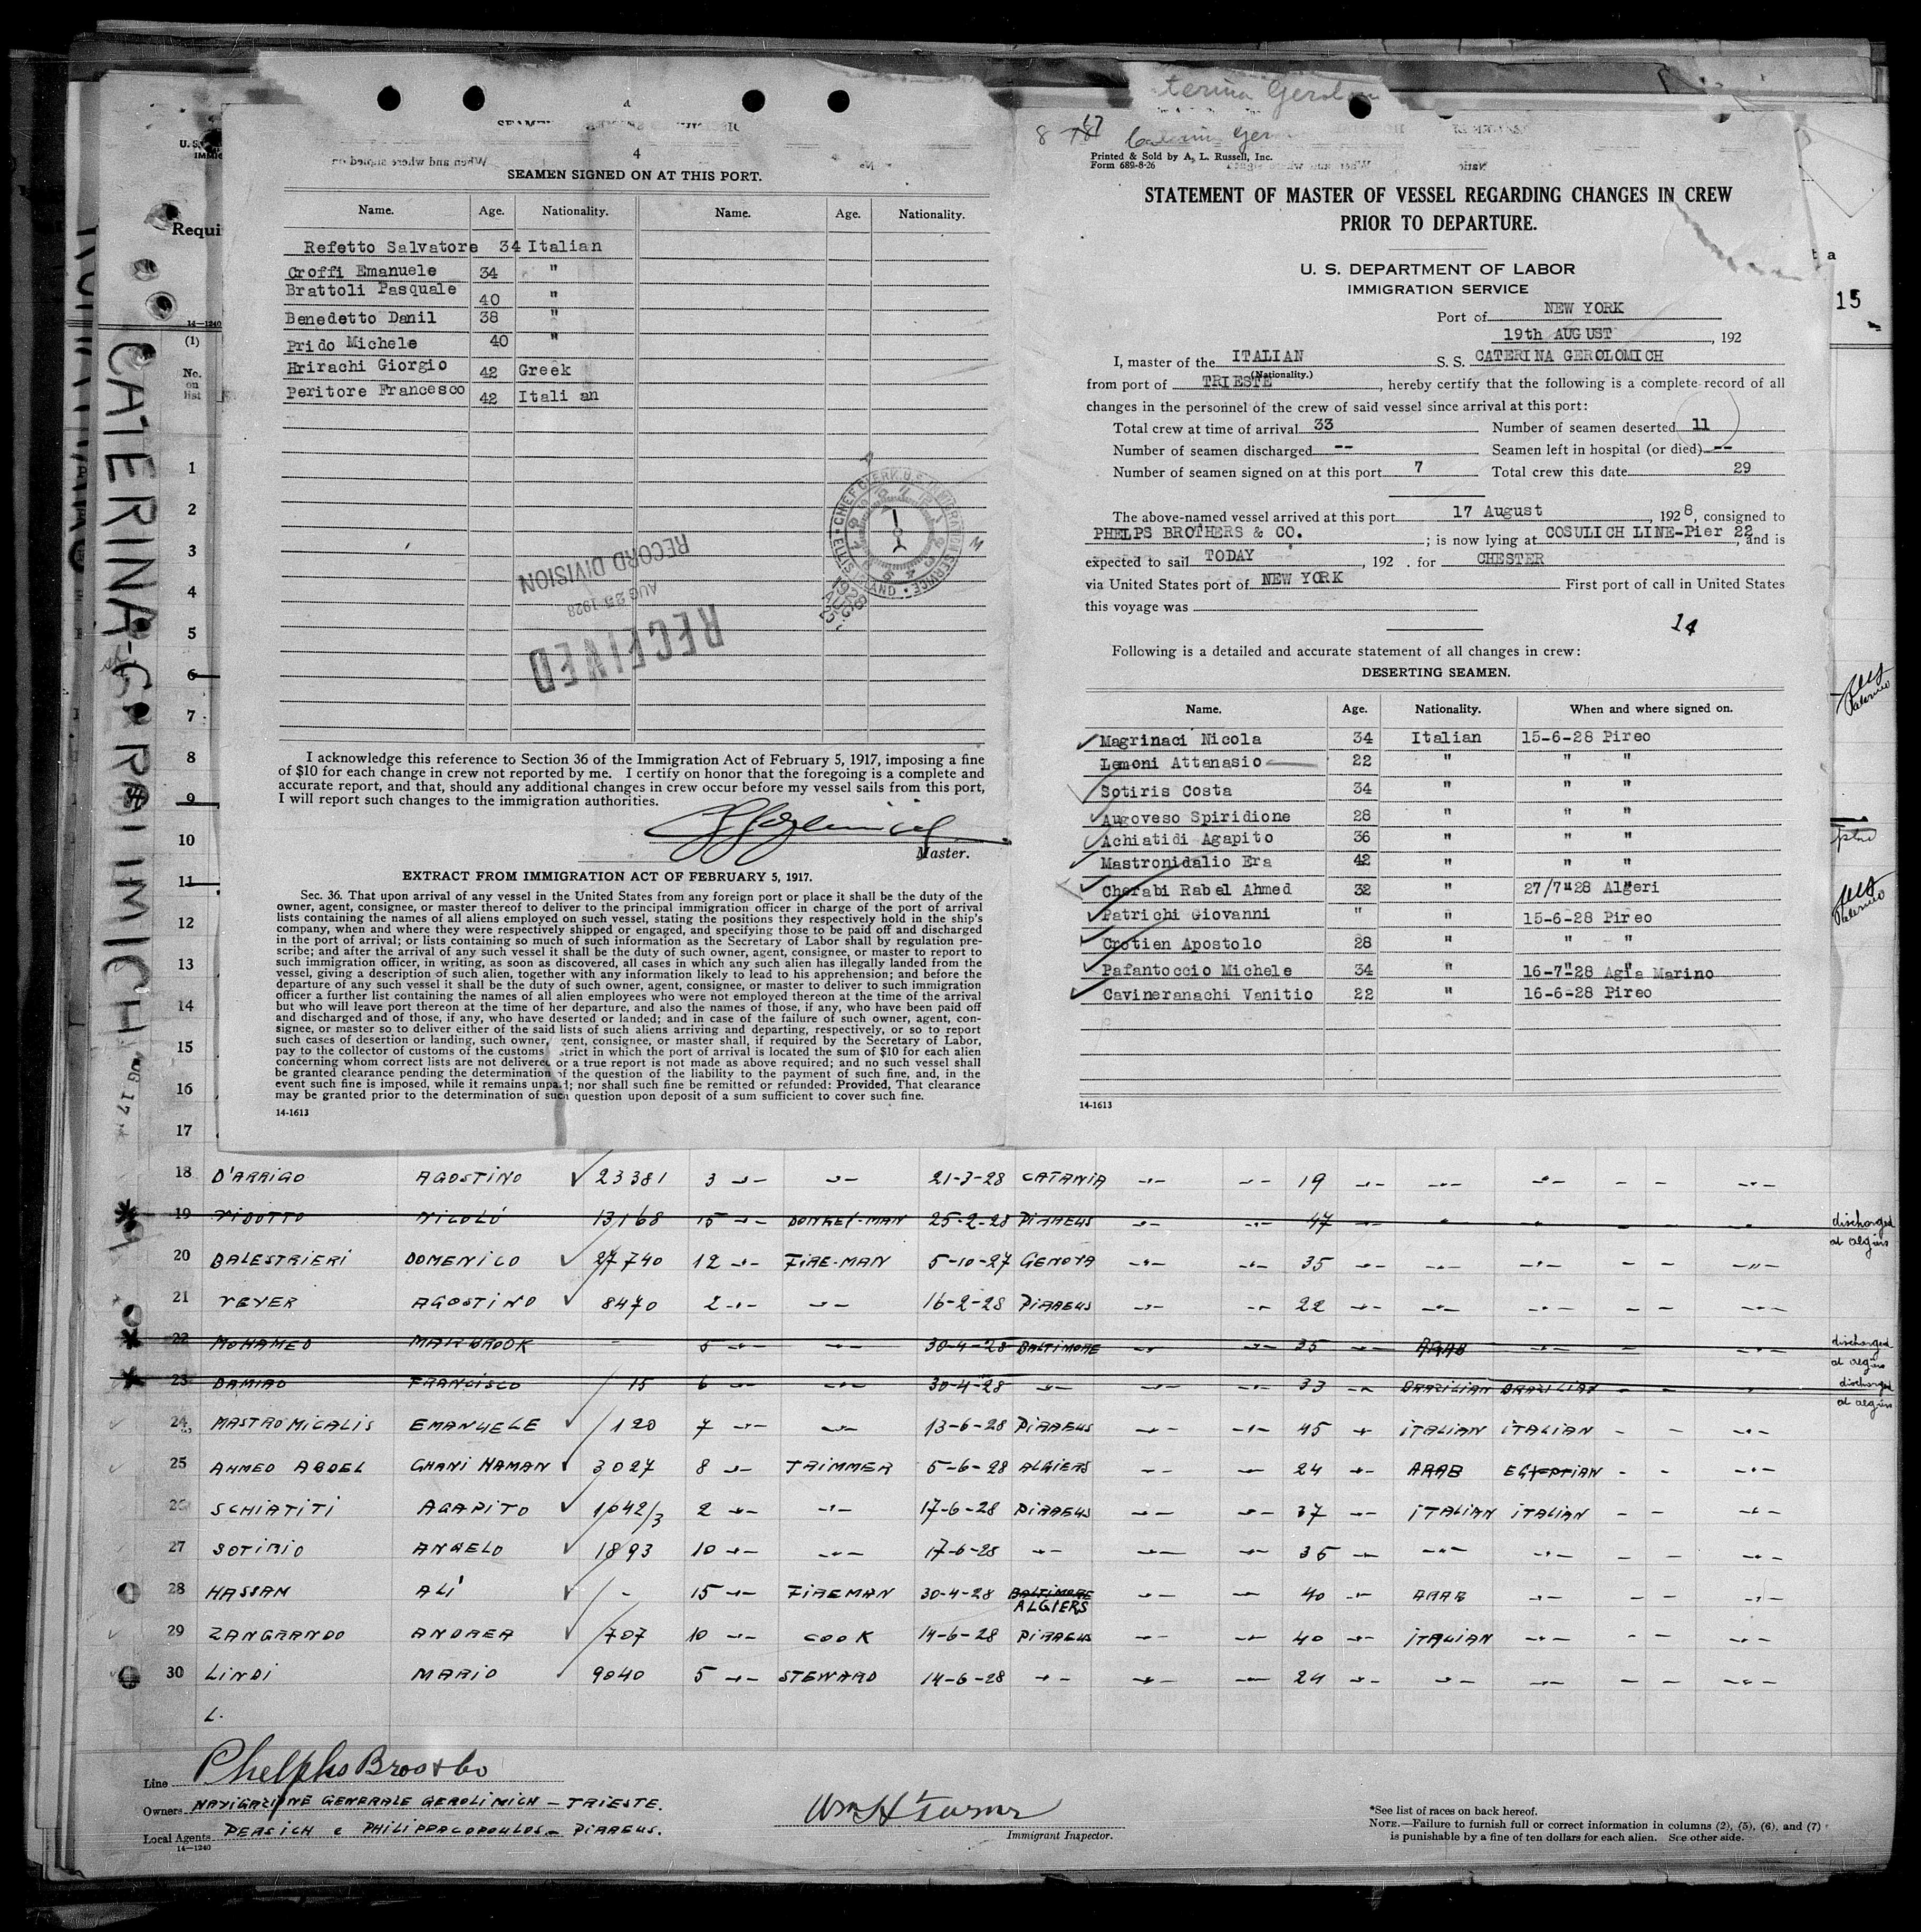 4
SEAMEN SIGNED ON AT THIS PORT.
Name. Age. Nationality. Name. Age. Nationality.
Refetto Salvatore 34 Italian
Croffi Emanuele 34 "
Brattoli Pasquale 40 "
Benedetto Danil 38 "
Prido Michele 40 "
Hrirachi Giorgio 42 Greek
Peritore Francesco 42 Itali an
RECEIVED
AUG 25 1928
RECORD DIVISION
I acknowledge this reference to Section 36 of the Immigration Act of February 5, 1917, imposing a fine
of $10 for each change in crew not reported by me. I certify on honor that the foregoing is a complete and
accurate report, and that, should any additional changes in crew occur before my vessel sails from this port,
I will report such changes to the immigration authorities.
Master.
EXTRACT FROM IMMIGRATION ACT OF FEBRUARY 5, 1917.
Sec. 36. That upon arrival of any vessel in the United States from any foreign port or place it shall be the duty of the
owner, agent, consignee, or master thereof to deliver to the principal immigration officer in charge of the port of arrival
lists containing the names of all aliens employed on such vessel, stating the positions they respectively hold in the ship's
company, when and where they were respectively shipped or engaged, and specifying those to be paid off and discharged
in the port of arrival; or lists containing so much of such information as the Secretary of Labor shall by regulation pre-
scribe; and after the arrival of any such vessel it shall be the duty of such owner, agent, consignee, or master to report to
such immigration officer, in writing, as soon as discovered, all cases in which any such alien has illegally landed from the
vessel, giving a description of such alien, together with any information likely to lead to his apprehension; and before the
departure of any such vessel it shall be the duty of such owner, agent, consignee, or master to deliver to such immigration
officer a further list containing the names of all alien employees who were not employed thereon at the time of the arrival
but who will leave port thereon at the time of her departure, and also the names of those, if any, who have been paid off
and discharged and of those, if any, who have deserted or landed; and in case of the failure of such owner, agent, con-
signee, or master so to deliver either of the said lists of such aliens arriving and departing, respectively, or so to report
such cases of desertion or landing, such owner, agent, consignee, or master shall, if required by the Secretary of Labor,
pay to the collector of customs of the customs district in which the port of arrival is located the sum of $10 for each alien
concerning whom correct lists are not delivered or a true report is not made as above required; and no such vessel shall
be granted clearance pending the determination of the question of the liability to the payment of such fine, and, in the
event such fine is imposed, while it remains unpaid; nor shall such fine be remitted or refunded: Provided, That clearance
may be granted prior to the determination of such question upon deposit of a sum sufficient to cover such fine.
14-1613
Printed & Sold by A. L. Russell, Inc.
Form 689-8-26
STATEMENT OF MASTER OF VESSEL REGARDING CHANGES IN CREW
PRIOR TO DEPARTURE.
U. S. DEPARTMENT OF LABOR
IMMIGRATION SERVICE
Port of NEW YORK
19th AUGUST, 192
I, master of the ITALIAN S. S. CATERINA GEROLOMICH
(Nationality.)
from port of TRIESTE, hereby certify that the following is a complete record of all
changes in the personnel of the crew of said vessel since arrival at this port:
Total crew at time of arrival 33 Number of seamen deserted 11
Number of seamen discharged -- Seamen left in hospital (or died) --
Number of seamen signed on at this port 7 Total crew this date 29
The above-named vessel arrived at this port 17 August, 1928, consigned to
PHELPS BROTHERS & CO.; is now lying at COSULICH LINE-Pier 22, and is
expected to sail TODAY, 192 . for CHESTER
via United States port of NEW YORK First port of call in United States
this voyage was
14
Following is a detailed and accurate statement of all changes in crew:
DESERTING SEAMEN.
Name. Age. Nationality. When and where signed on.
Magrinaci Nicola 34 Italian 15-6-28 Pireo
Lemoni Attanasio 22 " " "
Sotiris Costa 34 " " "
Augoveso Spiridione 28 " " "
Achiatidi Agapito 36 " " "
Mastronidalio Era 42 " " "
Cherabi Rabel Ahmed 32 " 27/7-28 Algeri
Patrichi Giovanni " " 15-6-28 Pireo
Crotien Apostolo 28 " " "
Pafantoccio Michele 34 " 16-7-28 Agia Marino
Cavineranachi Vanitio 22 " 16-6-28 Pireo
14-1613
CATERINA GEROLIMICH
Requi
14-1240
(1)
No. on list
1
2
3
4
5
6
7
8
9
10
11
12
13
14
15
16
17
15
18 D'ARRIGO AGOSTINO 23381 3 21-3-28 CATANIA 19
19 VIDOTTO NICOLÓ 13168 15 DONKEY-MAN 25-2-28 PIRAEUS 47 discharged at algiers
20 BALESTRIERI DOMENICO 27740 12 FIRE-MAN 5-10-27 GENOVA 35
21 VEYER AGOSTINO 8470 2 16-2-28 PIRAEUS 22
22 MOHAMED MAHBROOK - 5 30-4-28 BALTIMORE 35 ARAB discharged at algiers
23 DAMIAO FRANCISCO 15 6 30-4-28 33 BRAZILIAN BRAZILIAN discharged at algiers
24 MASTROMICALIS EMANUELE 120 7 13-6-28 PIRAEUS 45 ITALIAN ITALIAN
25 AHMED ABDEL GHANI HAMAN 3027 8 TRIMMER 5-6-28 ALGIERS 24 ARAB EGYPTIAN
26 SCHIATITI AGAPITO 1042/3 2 17-6-28 PIRAEUS 37 ITALIAN ITALIAN
27 SOTIRIO ANGELO 1893 10 17-6-28 35
28 HASSAN ALÍ - 15 FIREMAN 30-4-28 BALTIMORE ALGIERS 40 ARAB
29 ZANGRANDO ANDREA 707 10 COOK 14-6-28 PIRAEUS 40 ITALIAN
30 LINDI MARIO 9040 5 STEWARD 14-6-28 24
L.
Line Phelphs Bros & Co
Owners NAVIGAZIONE GENERALE GEROLIMICH - TRIESTE.
Local Agents PERSICH e PHILIPPACOPOULOS - PIRAEUS.
14-1240
Wm H Turner
Immigrant Inspector.
*See list of races on back hereof.
NOTE.—Failure to furnish full or correct information in columns (2), (5), (6), and (7)
is punishable by a fine of ten dollars for each alien. See other side.